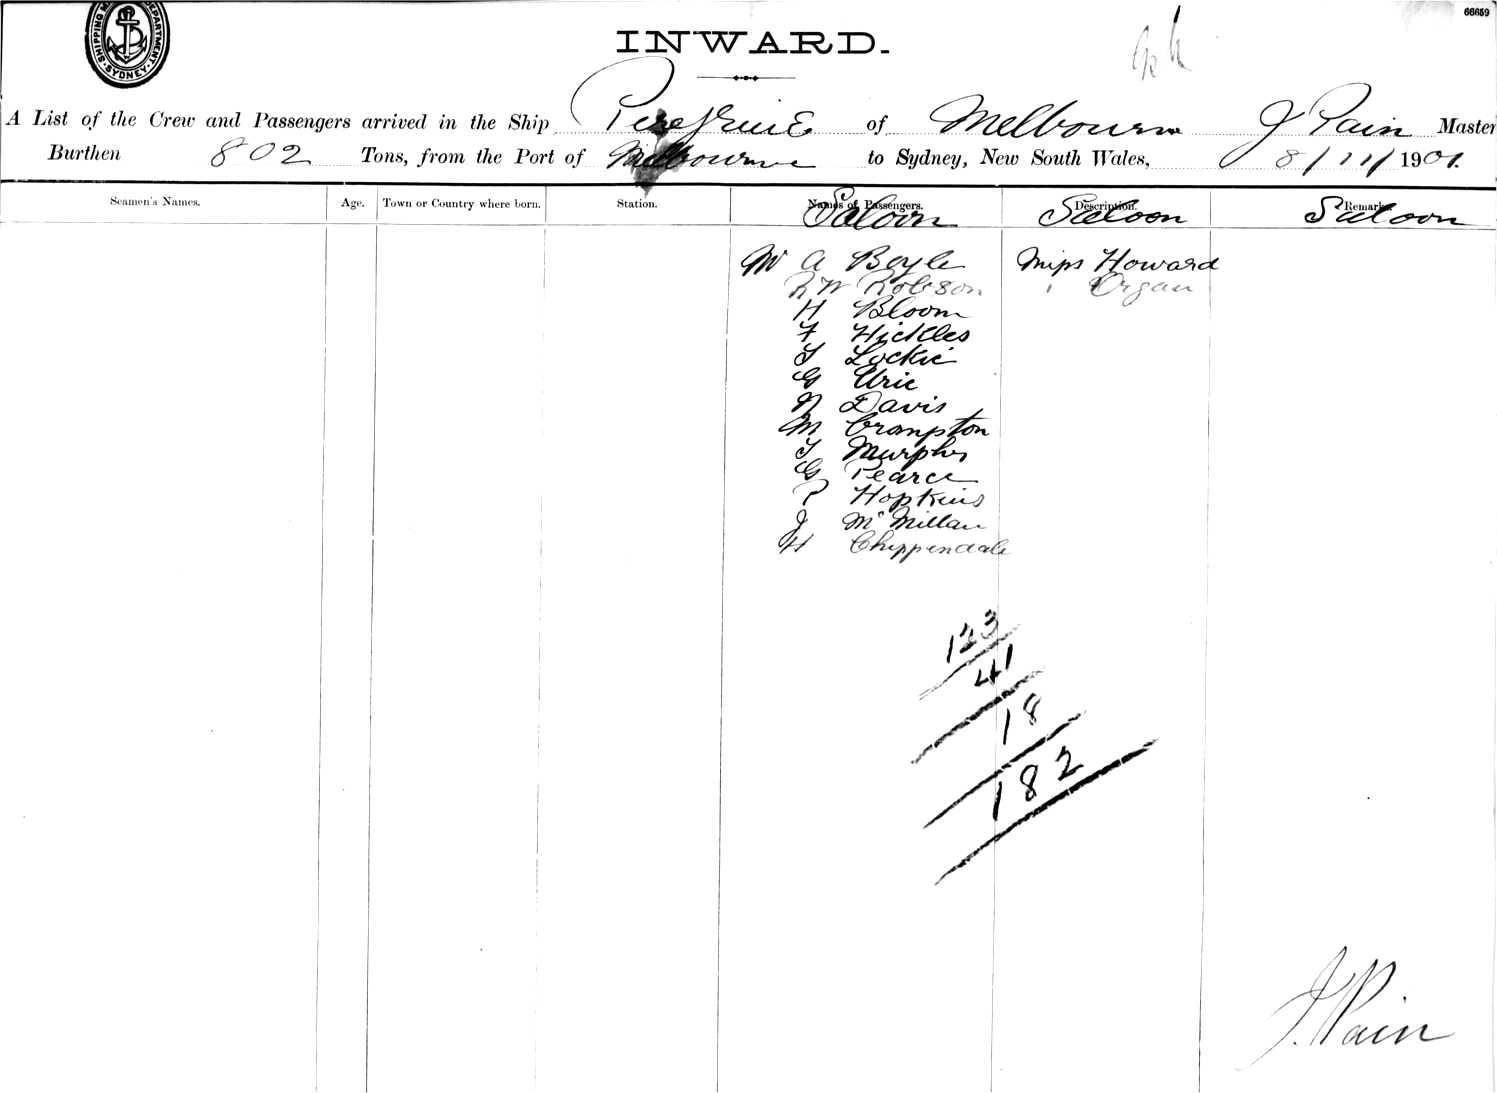 66659
SHIPPING DEPARTMENT SYDNEY
INWARD.
A List of the Crew and Passengers arrived in the Ship Peregrine of Melbourne J Pain Master
Burthen 802 Tons, from the Port of Melbourne to Sydney, New South Wales, 8/11/1901.
Seamen's Names. Age. Town or Country where born. Station. Names of Passengers. Description. Remarks.
Saloon Saloon Saloon
Mr A Boyle Miss Howard
R W Robson " Organ
H Bloom
F Hickles
T Lockie
G Uric
N Davis
M Crompton
T Murphy
G Pearce
P Hopkins
J McMillan
H Chippendale
123
41
18
182
J. Pain